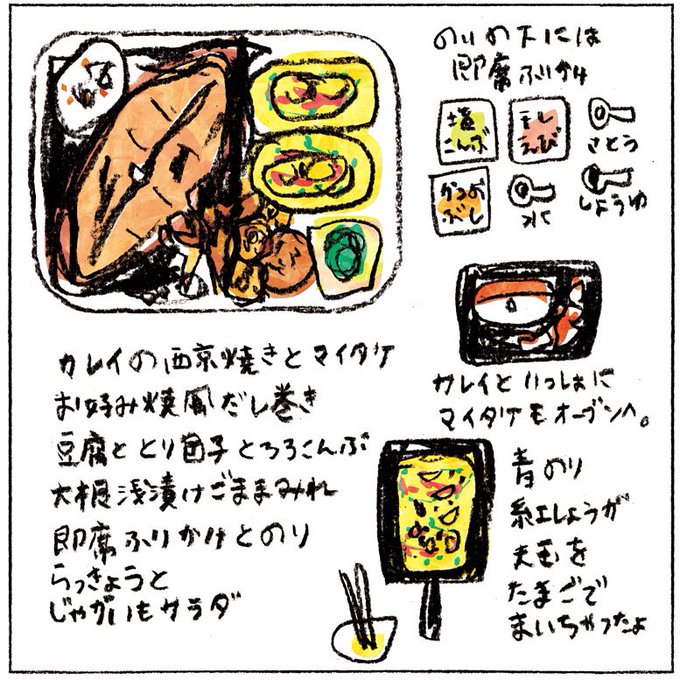 のりの下には
即席ふりかけ
塩
こんぶ
干し
えび
さとう
かつお
ぶし
水
しょうゆ
カレイといっしょに
マイタケもオーブンへ。
カレイの西京焼きとマイタケ
お好み焼風だし巻き
豆腐ととり団子とろろこんぶ
大根浅漬けごままみれ
即席ふりかけとのり
らっきょうと
じゃがいもサラダ
青のり
紅しょうが
天玉を
たまごで
まいちゃったよ